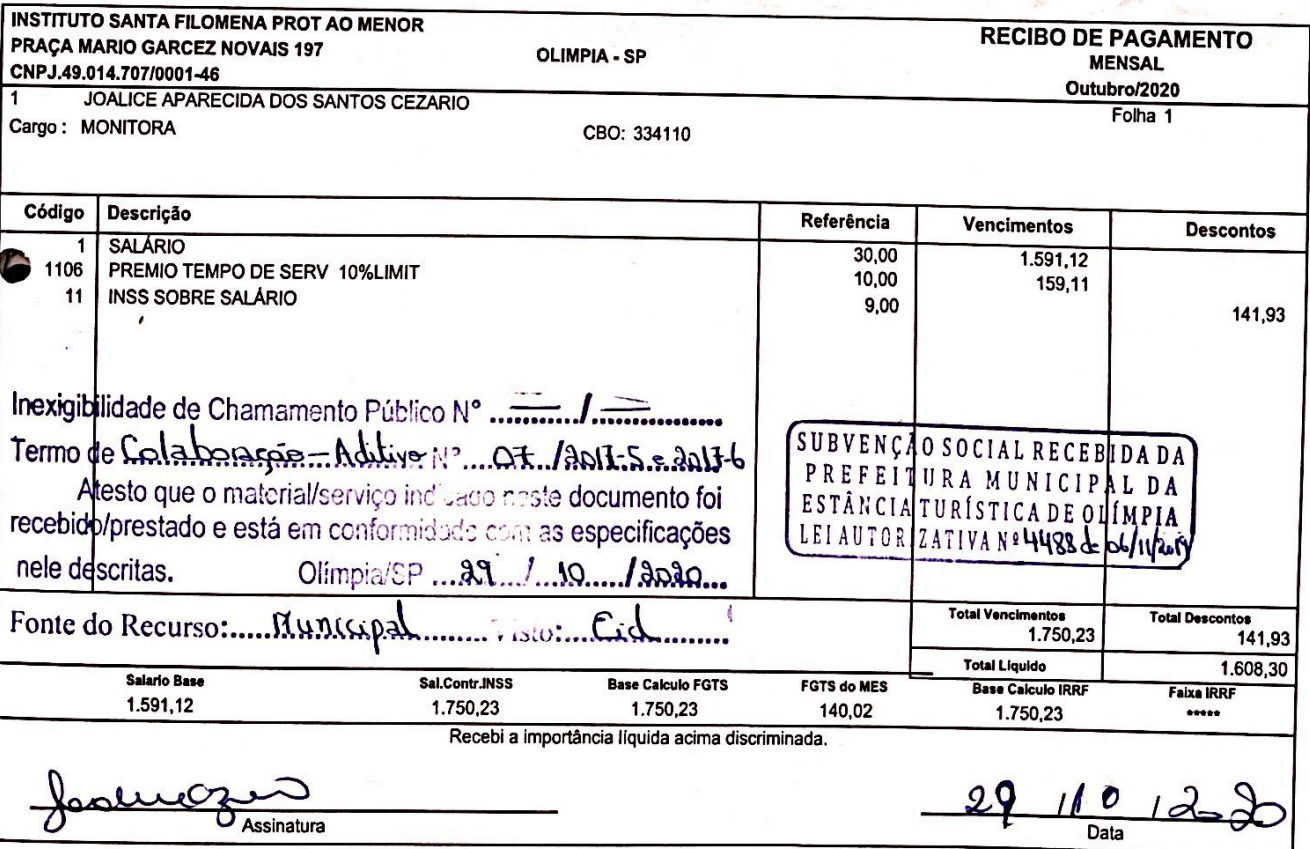 INSTITUTO SANTA FILOMENA PROT AO MENOR
PRAÇA MARIO GARCEZ NOVAIS 197
CNPJ.49.014.707/0001-46
OLIMPIA - SP
RECIBO DE PAGAMENTO
MENSAL
Outubro/2020
1 JOALICE APARECIDA DOS SANTOS CEZARIO
Folha 1
Cargo : MONITORA CBO: 334110
Código Descrição Referência Vencimentos Descontos
1 SALÁRIO 30,00 1.591,12
1106 PREMIO TEMPO DE SERV 10%LIMIT 10,00 159,11
11 INSS SOBRE SALÁRIO 9,00 141,93
Inexigibilidade de Chamamento Público N° ....../......
Termo de Colaboração - Aditivo N° 07 /2017-5 e 2017-6
Atesto que o material/serviço indicado neste documento foi
recebido/prestado e está em conformidade com as especificações
nele descritas. Olímpia/SP 29 / 10 /2020
SUBVENÇÃO SOCIAL RECEBIDA DA
PREFEITURA MUNICIPAL DA
ESTÂNCIA TURÍSTICA DE OLÍMPIA
LEI AUTORIZATIVA Nº 4488 de 06/11/2019
Fonte do Recurso: Municipal Visto: Cid
Total Vencimentos Total Descontos
1.750,23 141,93
Total Liquido 1.608,30
Salario Base Sal.Contr.INSS Base Calculo FGTS FGTS do MES Base Calculo IRRF Faixa IRRF
1.591,12 1.750,23 1.750,23 140,02 1.750,23 *****
Recebi a importância líquida acima discriminada.
29 / 10 / 2020
Assinatura Data